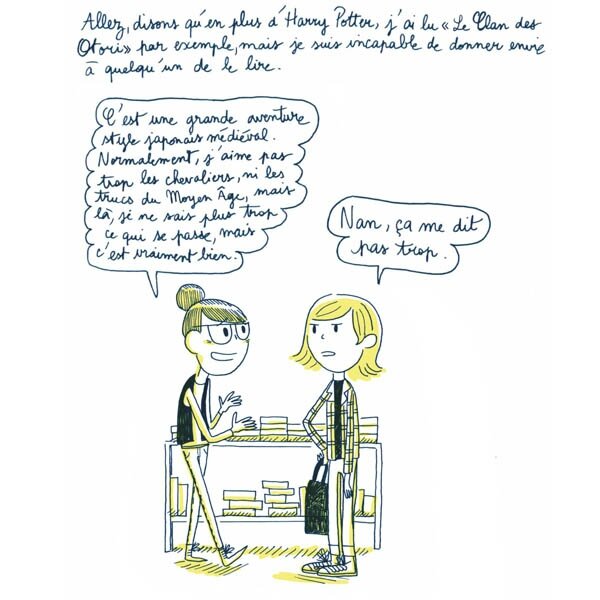 Allez, disons qu'en plus d'Harry Potter, j'ai lu « Le Clan des
Otori » par exemple, mais je suis incapable de donner envie
à quelqu'un de le lire.
C'est une grande aventure
style japonais médiéval.
Normalement, j'aime pas
trop les chevaliers, ni les
trucs du Moyen Âge, mais
là, je ne sais plus trop
ce qui se passe, mais
c'est vraiment bien.
Nan, ça me dit
pas trop.